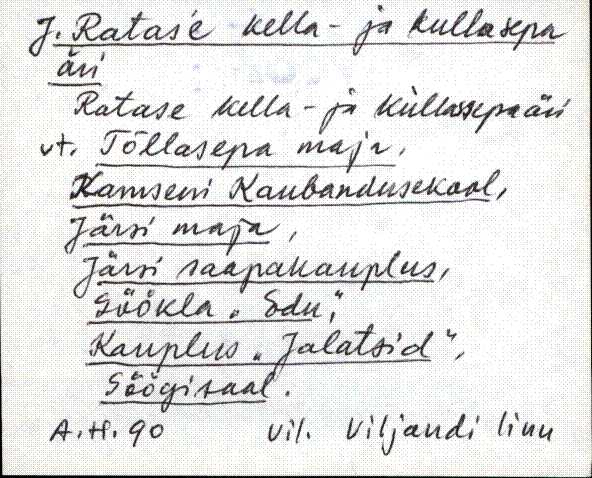 J. Ratas'e kella- ja kullasepa
äri
Ratase kella- ja kullassepaäri
vt. Tõllasepa maja,
Kamseni Kaubandusekool,
Järsi maja,
Järsi saapakauplus,
Söökla „Edu",
Kauplus „Jalatsid",
Söögisaal.
A.H. 90 Vil. Viljandi linn